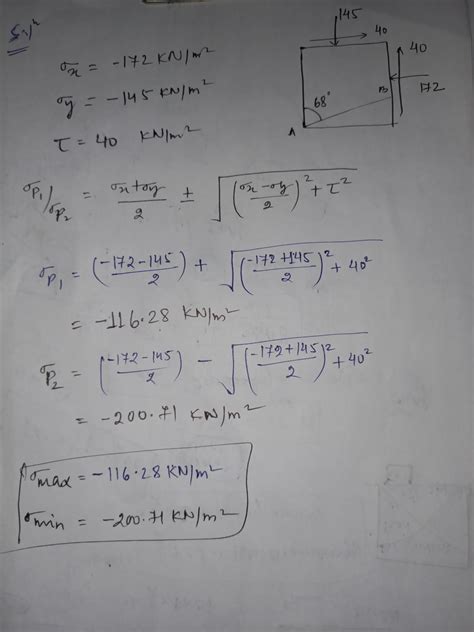 Sol<sup>n</sup>
σx = -172 KN/m²
σy = -145 KN/m²
τ = 40 KN/m²
145
40
40
172
68°
A
B
σP1/σP2 = σx+σy/2 ± √((σx-σy/2)² + τ²)
σP1 = (-172-145/2) + √((-172+145/2)² + 40²)
= -116.28 KN/m²
σP2 = (-172-145/2) - √((-172+145/2)² + 40²)
= -200.71 KN/m²
σmax = -116.28 KN/m²
σmin = -200.71 KN/m²